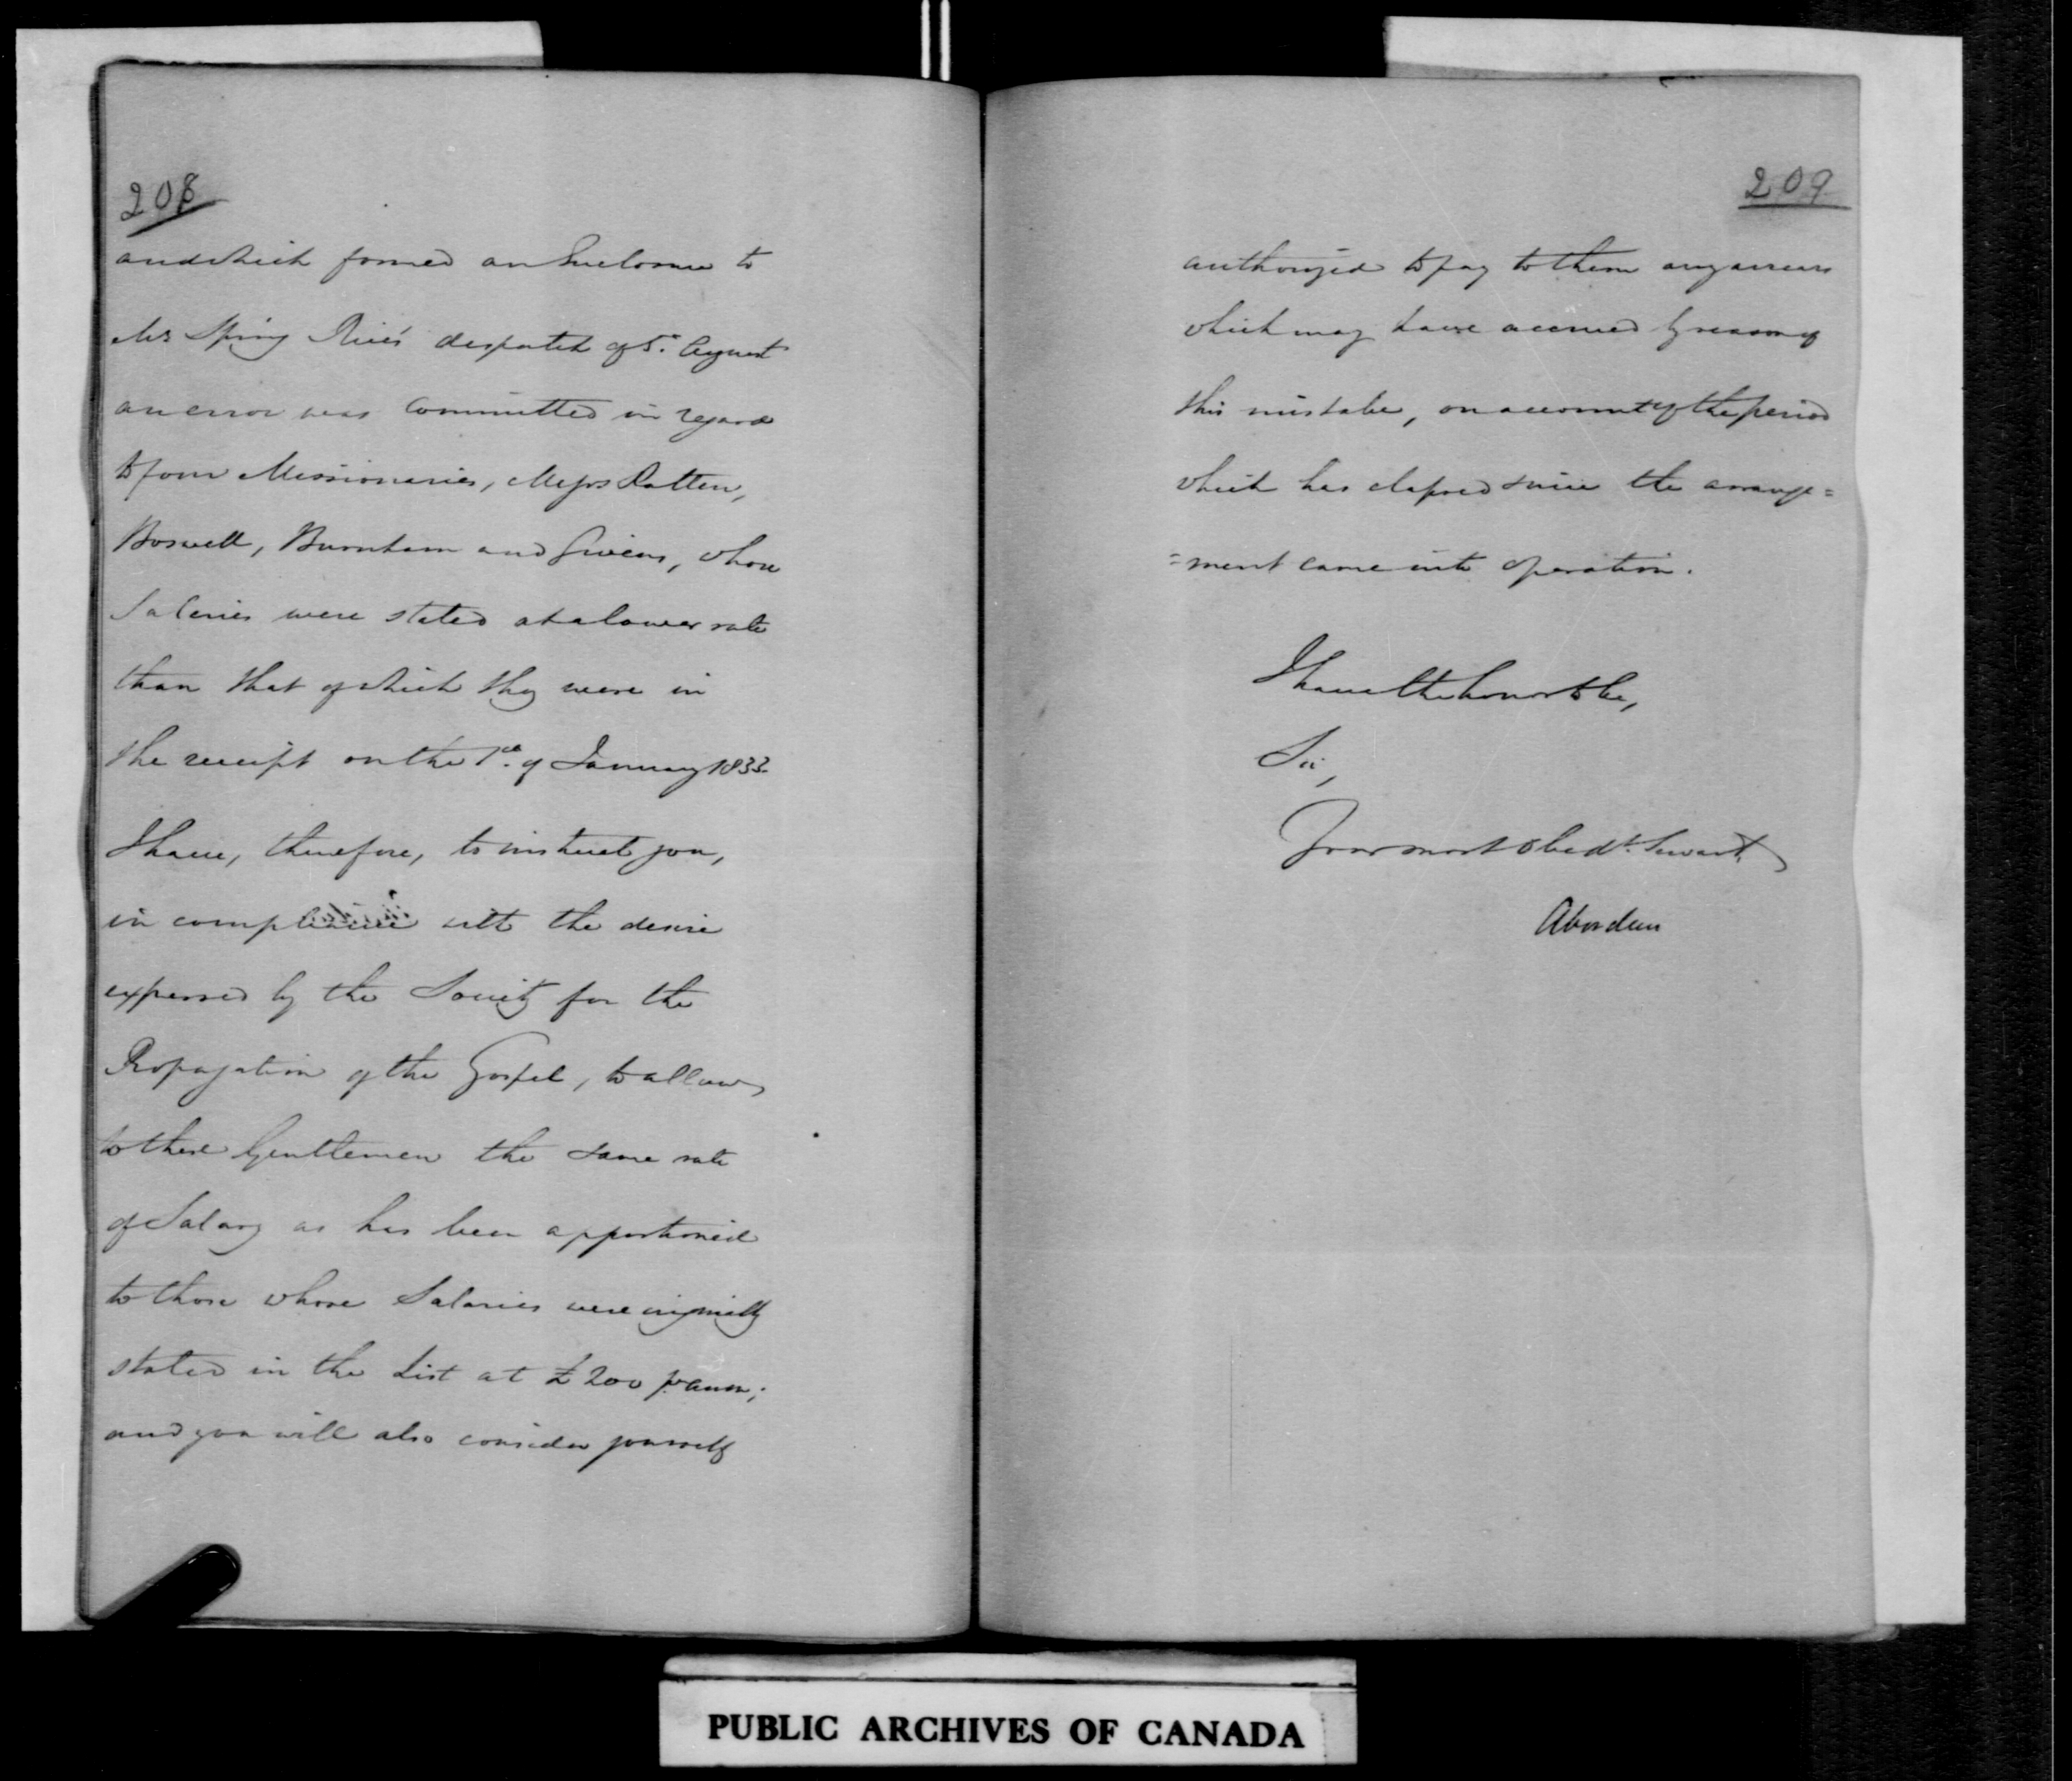 208
and which formed an Enclosure to
Mr Spring Rice's despatch of 5th August
an error was committed in regard
to four Missionaries, Messrs Patten,
Boswell, Burnham and Givens, whose
Salaries were stated at a lower rate
than that of which they were in
the receipt on the 1st of January 1833.
I have, therefore, to instruct you,
in compliance with the desire
expressed by the Society for the
Propagation of the Gospel, to allow
to these Gentlemen the same rate
of Salary as has been apportioned
to those whose Salaries were originally
stated in the List at £200 p annm;
and you will also consider yourself
209
authorized to pay to them any arrears
which may have accrued by reason of
this mistake, on account of the period
which has elapsed since the arrange=
=ment came into operation.
I have the honor to be,
Sir,
Your most obedt. Servant,
Aberdeen
PUBLIC ARCHIVES OF CANADA